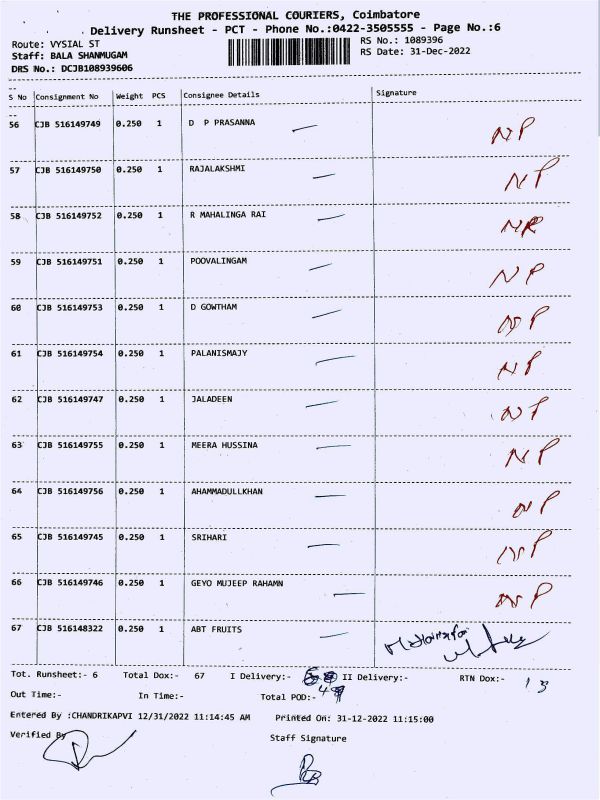 THE PROFESSIONAL COURIERS, Coimbatore
Delivery Runsheet - PCT - Phone No.:0422-3505555 - Page No.:6
Route: VYSIAL ST
RS No.: 1089396
Staff: BALA SHANMUGAM
RS Date: 31-Dec-2022
DRS No.: DCJB108939606
S No Consignment No Weight PCS Consignee Details Signature
56 CJB 516149749 0.250 1 D P PRASANNA NP
57 CJB 516149750 0.250 1 RAJALAKSHMI NP
58 CJB 516149752 0.250 1 R MAHALINGA RAI NR
59 CJB 516149751 0.250 1 POOVALINGAM NP
60 CJB 516149753 0.250 1 D GOWTHAM NP
61 CJB 516149754 0.250 1 PALANISMAJY NP
62 CJB 516149747 0.250 1 JALADEEN NP
63 CJB 516149755 0.250 1 MEERA HUSSINA NP
64 CJB 516149756 0.250 1 AHAMMADULLKHAN NP
65 CJB 516149745 0.250 1 SRIHARI NP
66 CJB 516149746 0.250 1 GEYO MUJEEP RAHAMN NP
67 CJB 516148322 0.250 1 ABT FRUITS
Tot. Runsheet:- 6 Total Dox:- 67 I Delivery:- II Delivery:- RTN Dox:- 13
Out Time:- In Time:- Total POD:-
Entered By :CHANDRIKAPVI 12/31/2022 11:14:45 AM Printed On: 31-12-2022 11:15:00
Verified By
Staff Signature